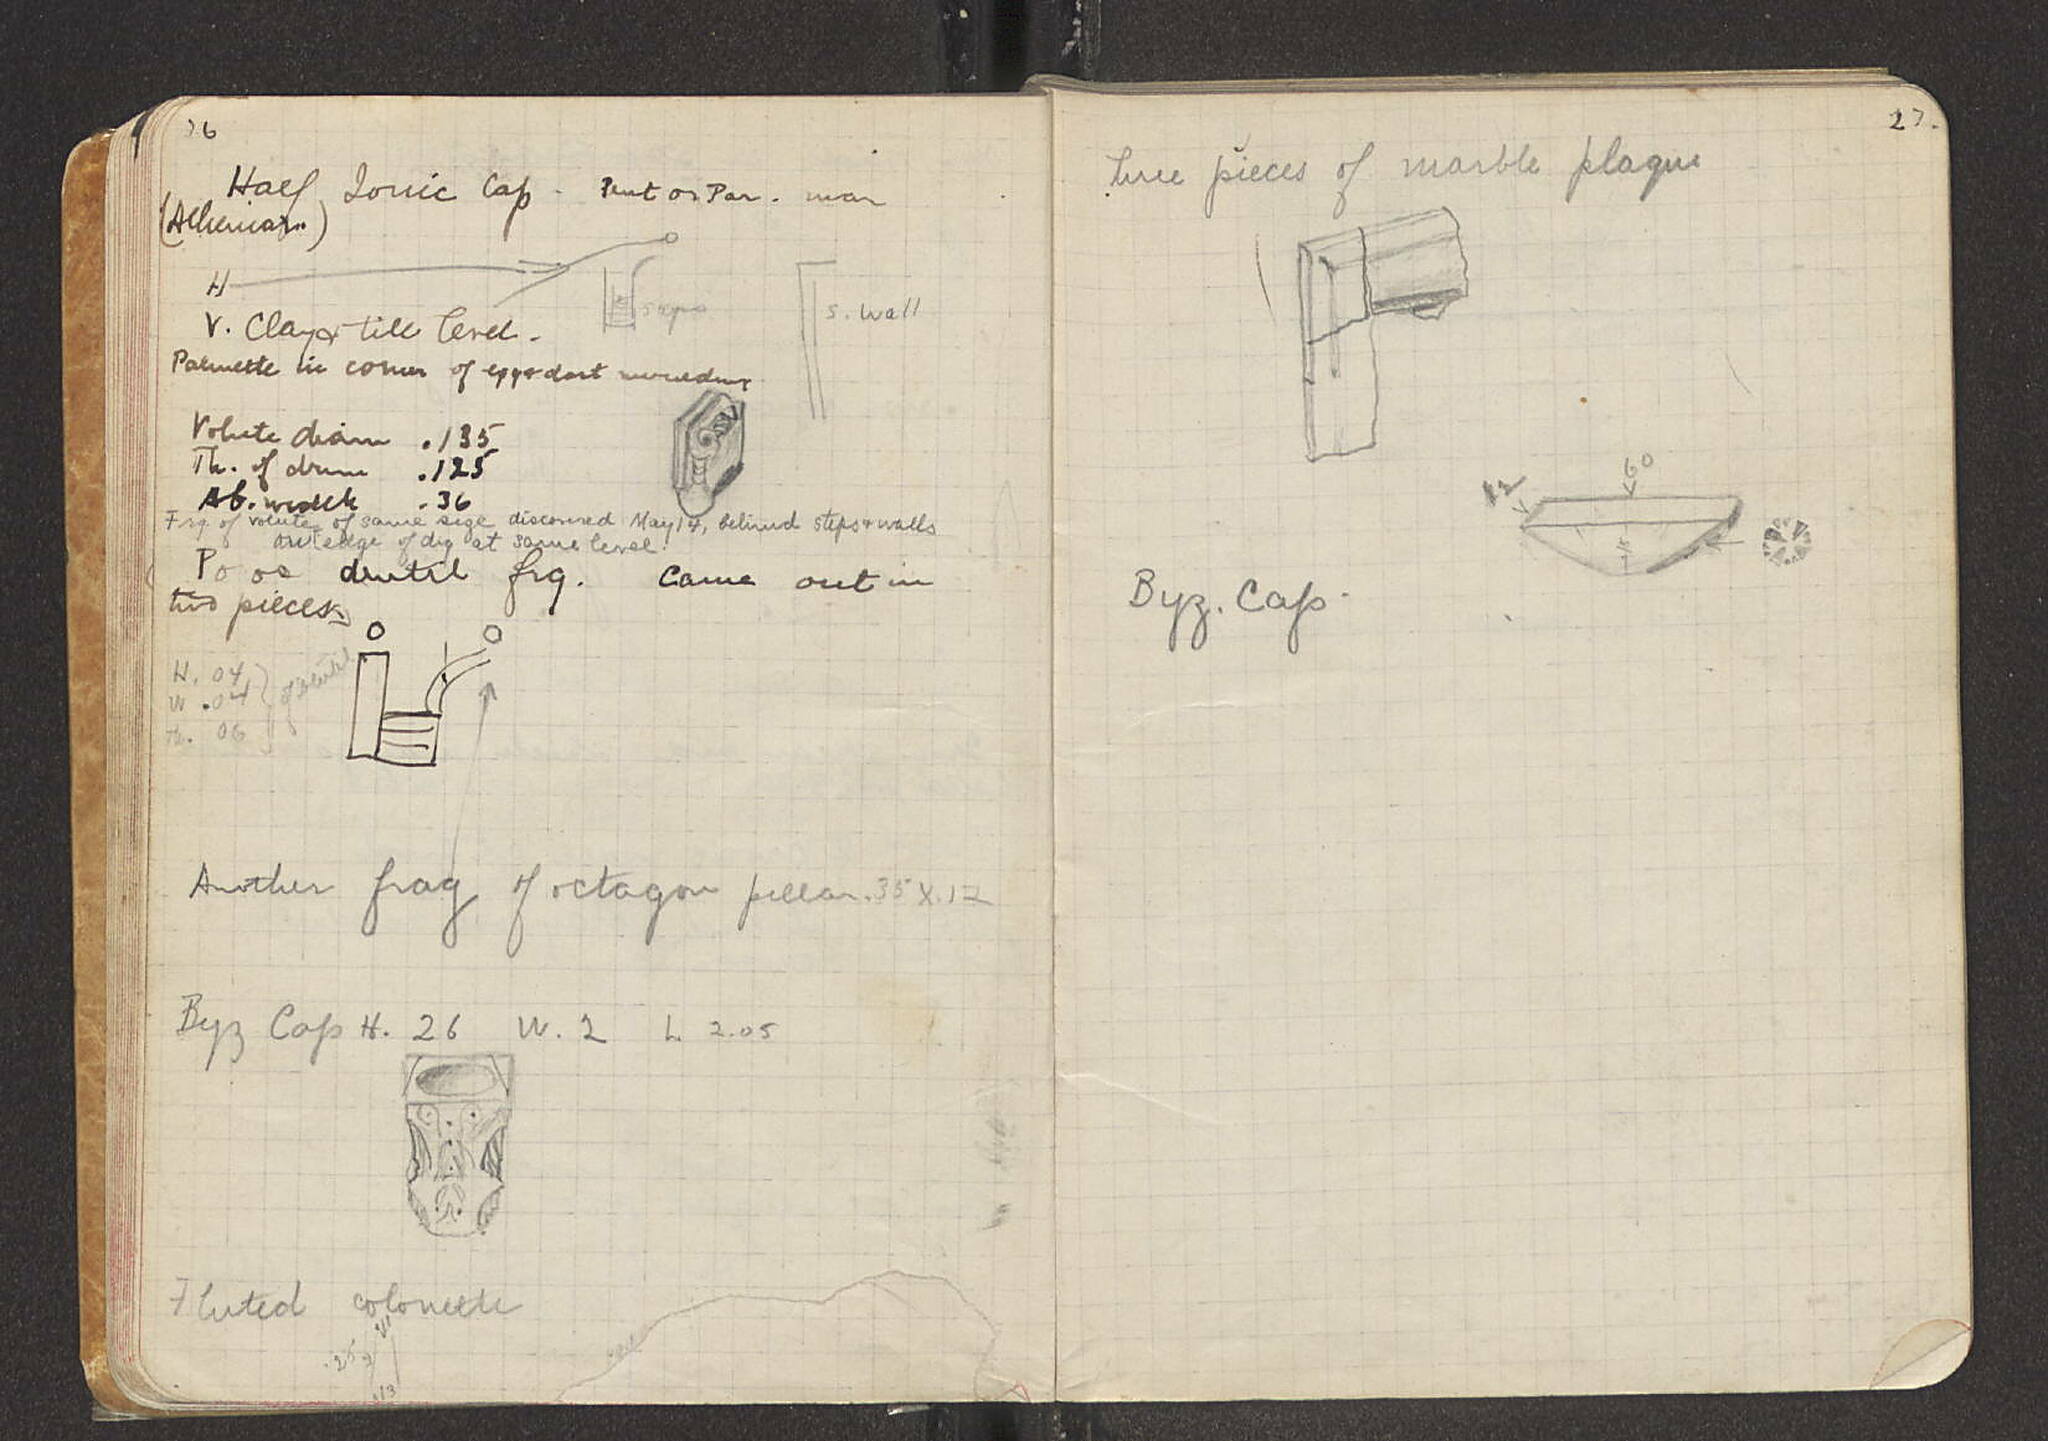 26
Half Ionic Cap - Pent or Par. mar
(Athenian)
H
V. Clay & tile level.
steps
S. Wall
Palmette in corner of egg & dart moulding
Volute diam .135
Th. of drum .125
Ab. width .36
Frg of volute of same size discovered May 14, behind steps & walls
on edge of dig at same level.
Poros dentil frg. Came out in
two pieces
H. 04
W .04
Th. 06
of dentil
Another frag of octagon pillar .35 X .12
Byz Cap H. 26 W. 2 L 2.05
Fluted colonette
.25
27.
three pieces of marble plaque
12
60
Byz. Cap.